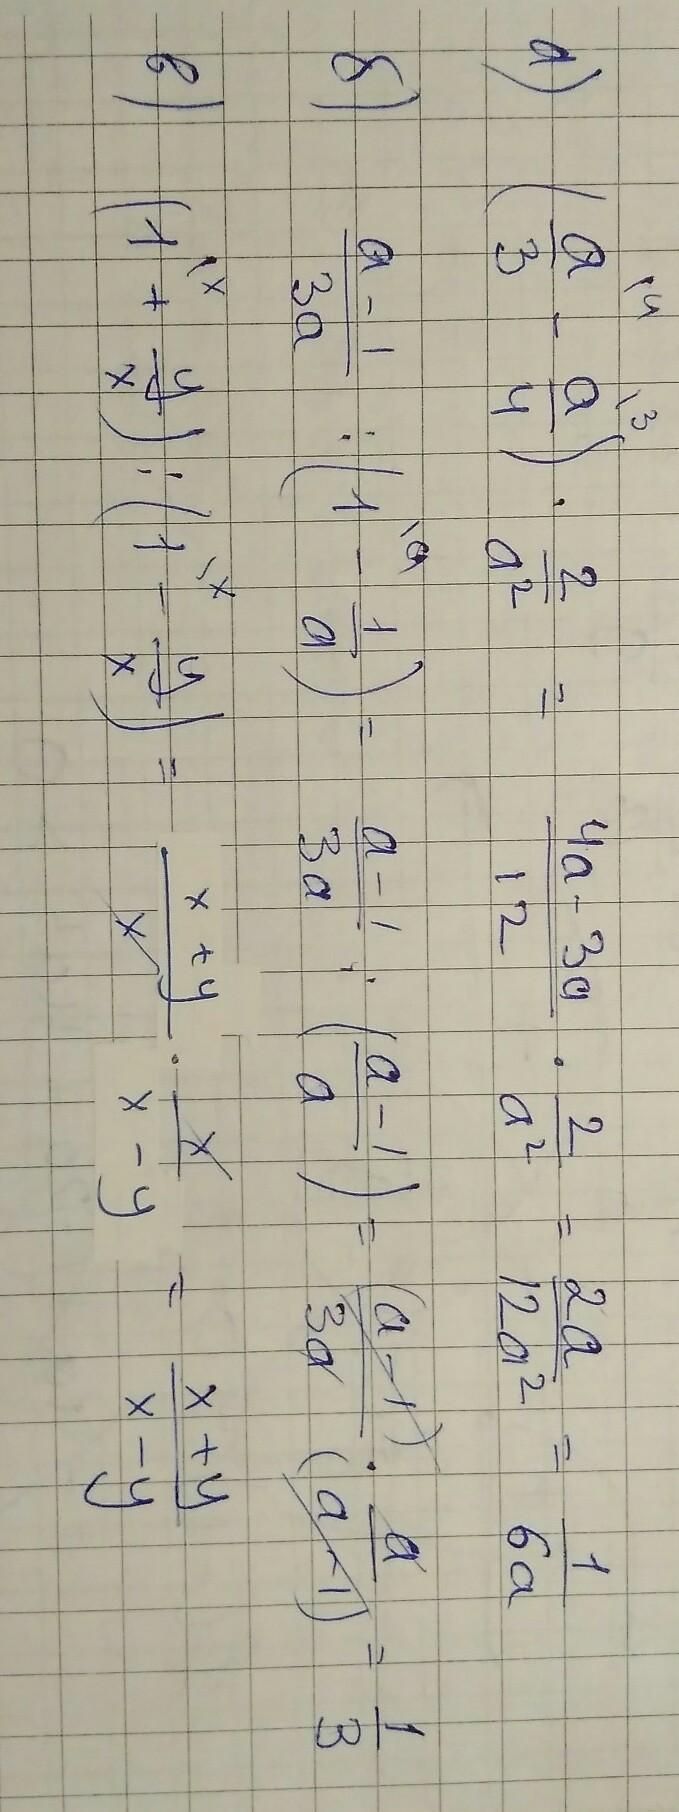 а) (a/3 \4 - a/4 \3) · 2/a² = 4a-3a/12 · 2/a² = 2a/12a² = 1/6a
б) a-1/3a : (1 \a - 1/a) = a-1/3a : (a-1/a) = (a-1)/3a · a/(a-1) = 1/3
в) (1 \x + y/x) : (1 \x - y/x) = x+y/x · x/x-y = x+y/x-y